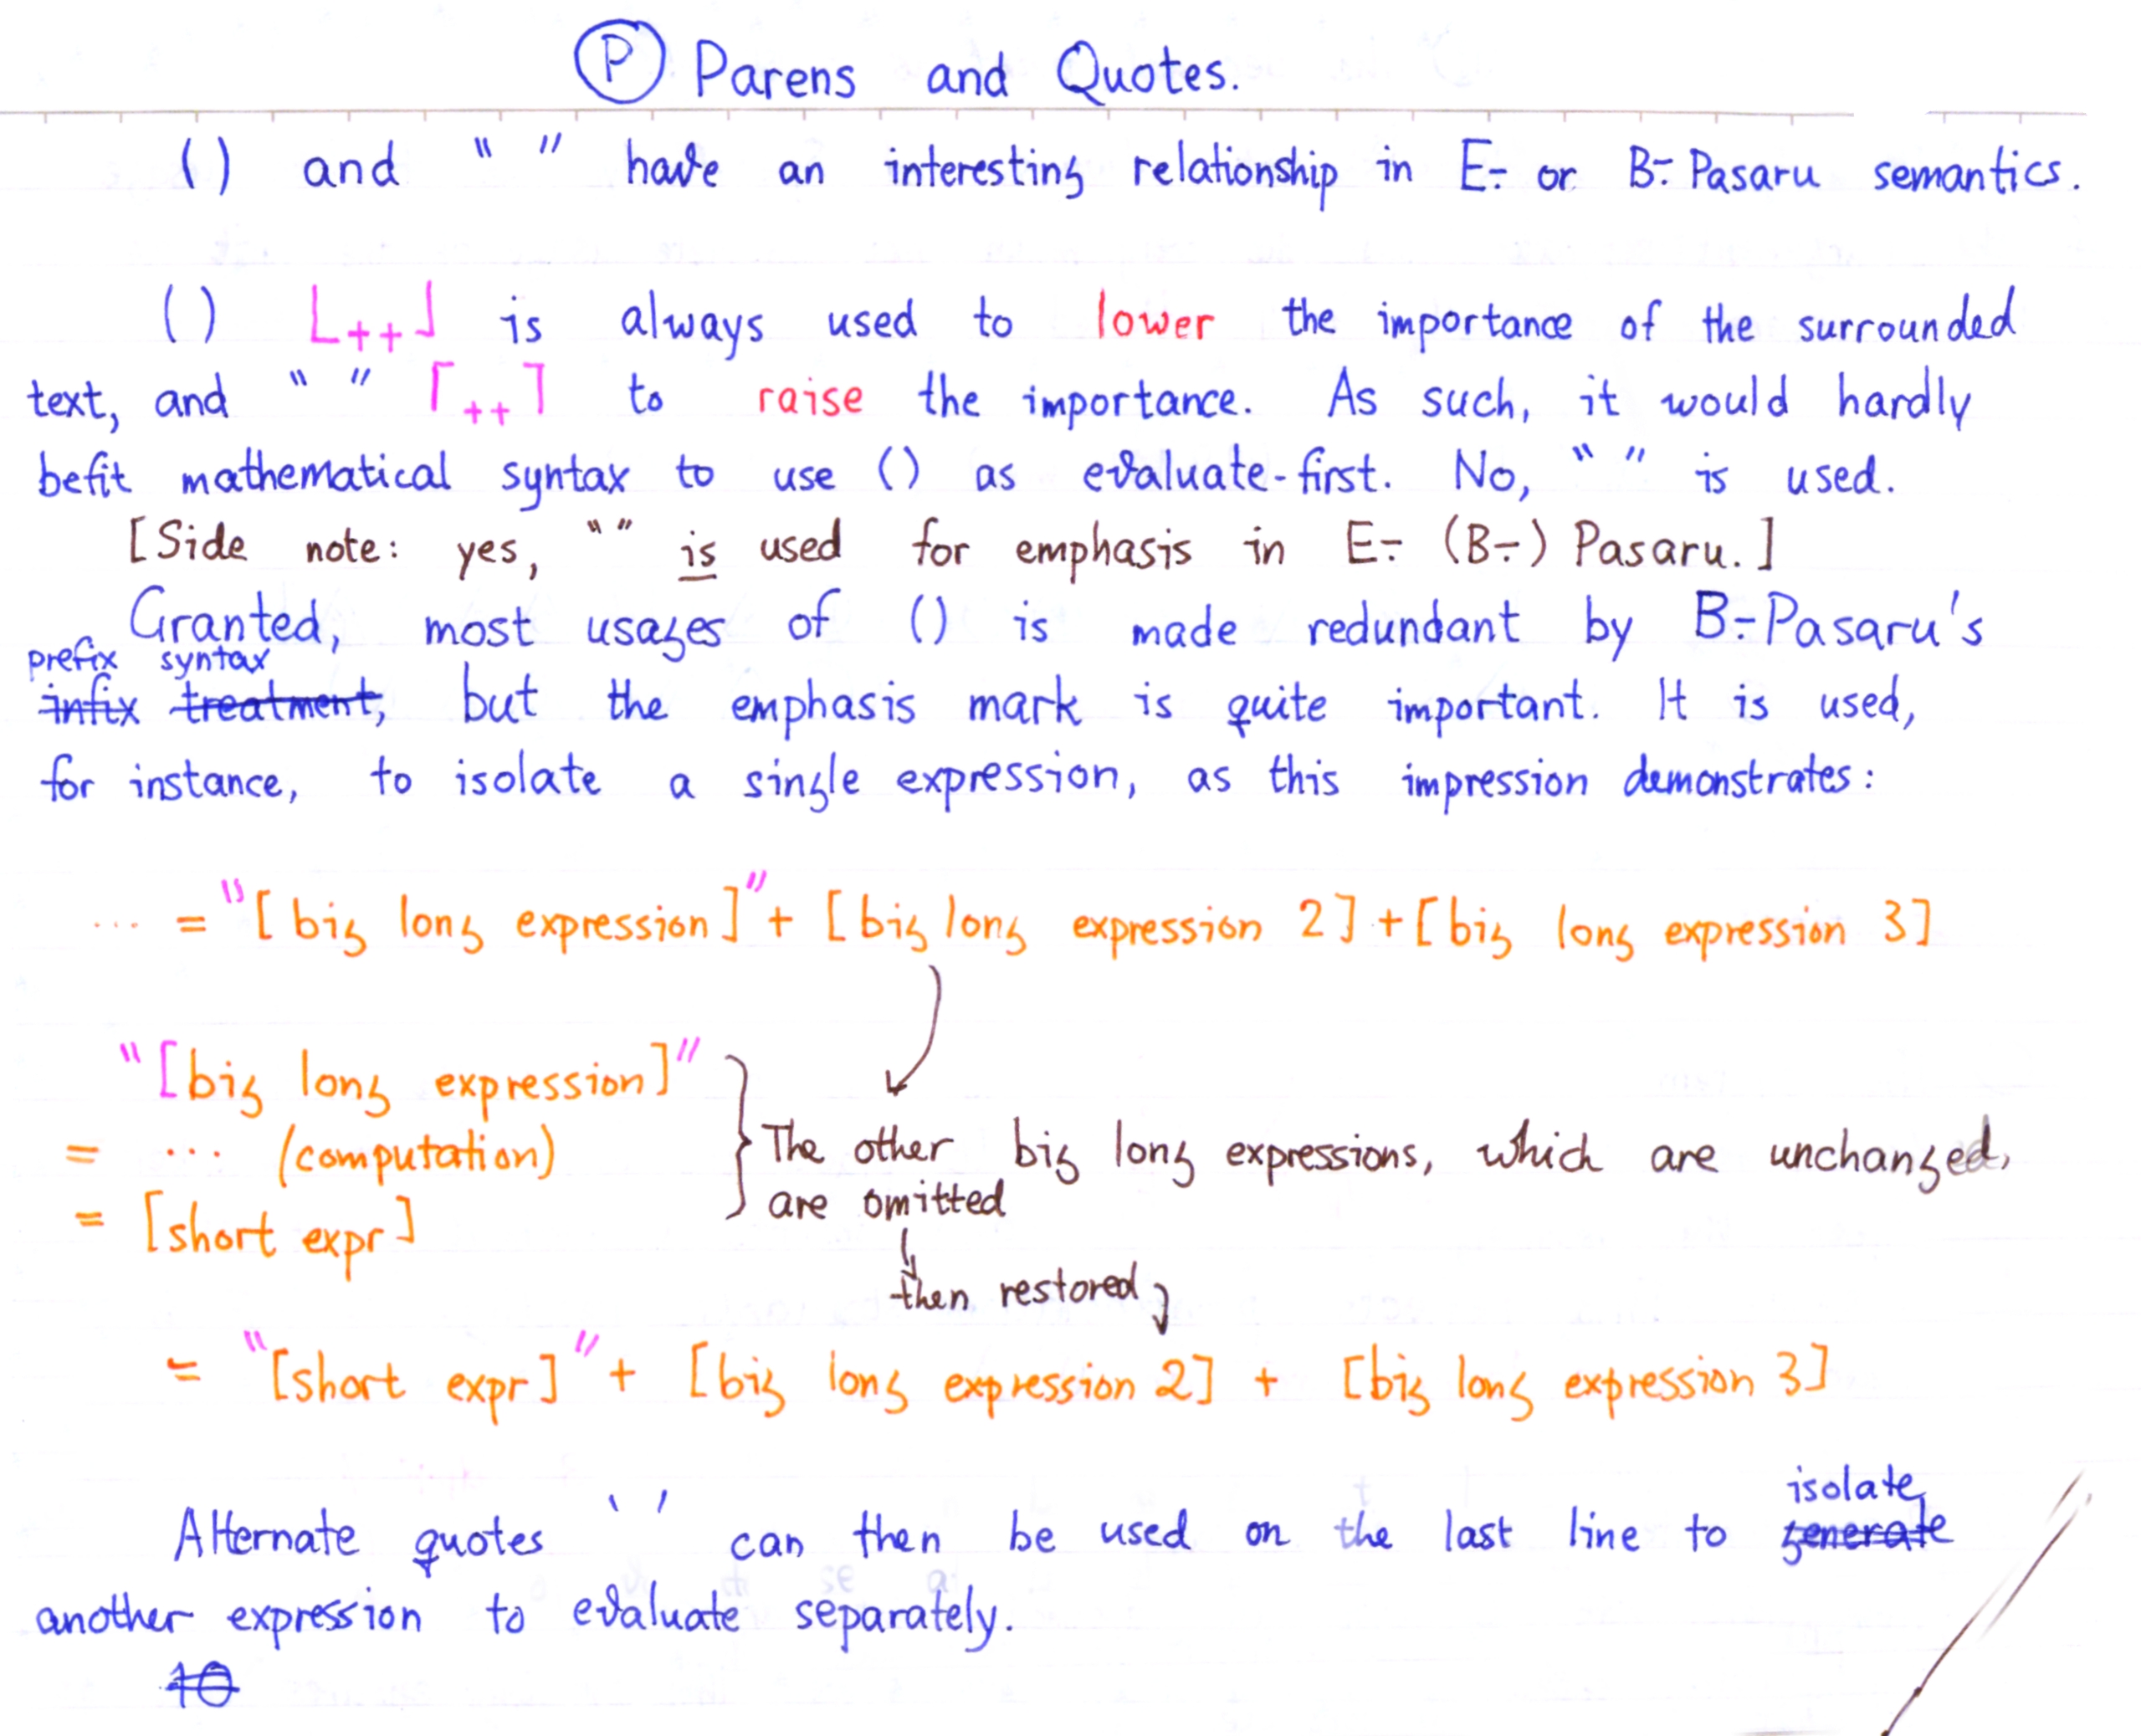 Ⓟ Parens and Quotes.
() and “ ” have an interesting relationship in E÷ or B÷ Pasaru semantics.
() ⌊++⌋ is always used to lower the importance of the surrounded
text, and “ ” ⌈++⌉ to raise the importance. As such, it would hardly
befit mathematical syntax to use () as evaluate-first. No, “ ” is used.
[Side note: yes, “ ” is used for emphasis in E÷ (B÷) Pasaru.]
Granted, most usages of () is made redundant by B÷Pasaru's
prefix syntax
infix treatment, but the emphasis mark is quite important. It is used,
for instance, to isolate a single expression, as this impression demonstrates:
... = “[big long expression]” + [big long expression 2] + [big long expression 3]
“[big long expression]”
= ... (computation)
= [short expr]
The other big long expressions, which are unchanged,
are omitted
then restored
= “[short expr]” + [big long expression 2] + [big long expression 3]
isolate
Alternate quotes ‘ ’ can then be used on the last line to generate
another expression to evaluate separately.
10